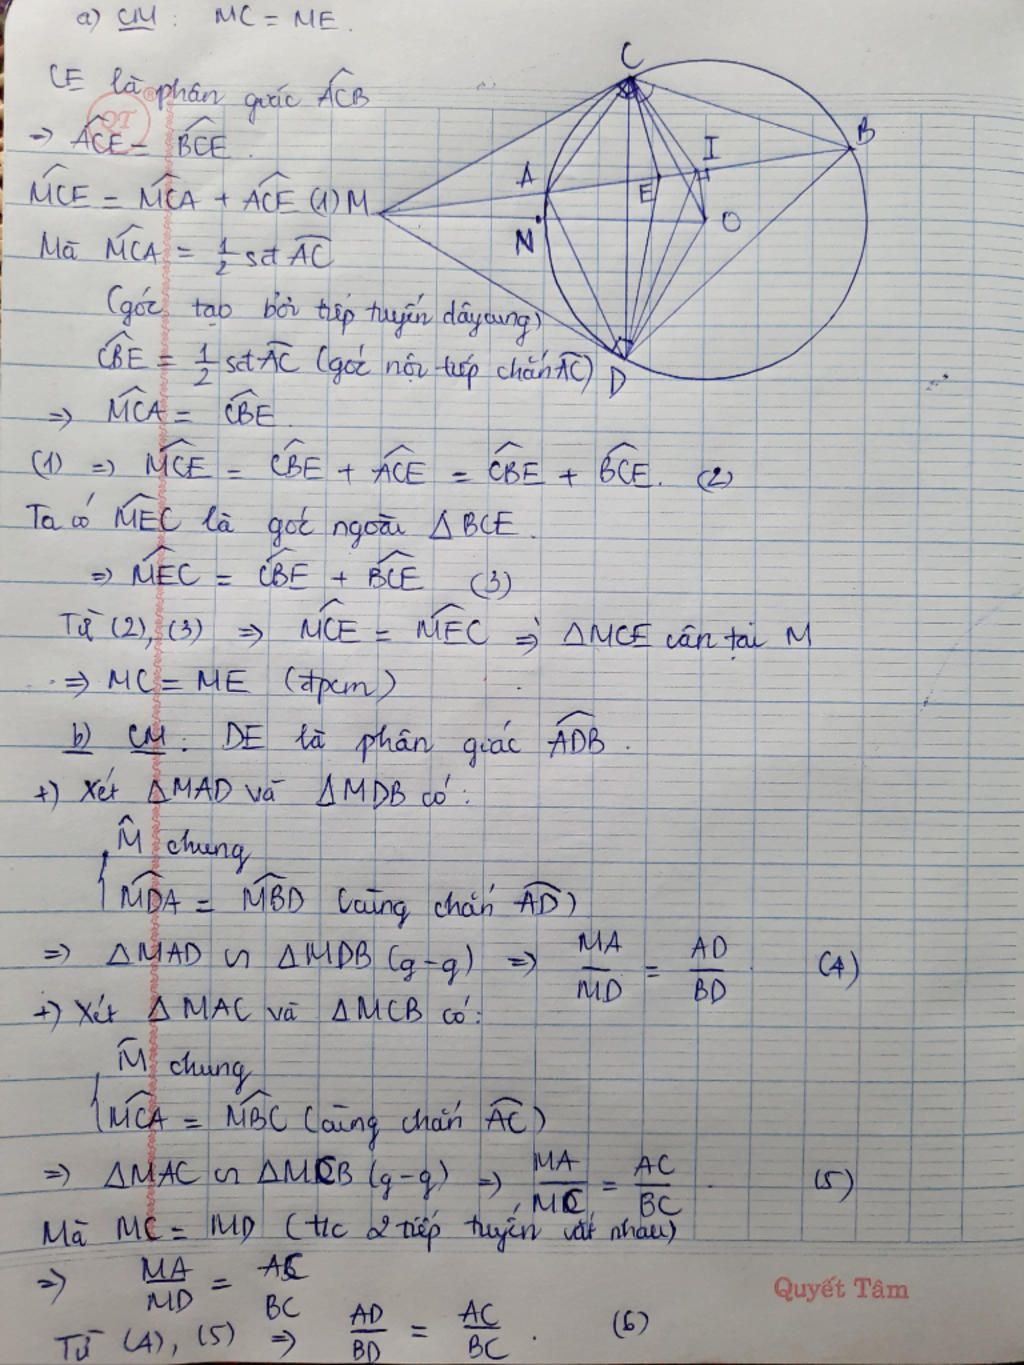 a) CM: MC = ME.
CE là phân giác \widehat{ACB}
=> \widehat{ACE} = \widehat{BCE}.
\widehat{MCE} = \widehat{MCA} + \widehat{ACE} (1)
Mà \widehat{MCA} = \frac{1}{2} sđ \widehat{AC}
(góc tạo bởi tiếp tuyến dây cung)
\widehat{CBE} = \frac{1}{2} sđ \widehat{AC} (góc nội tiếp chắn \widehat{AC})
=> \widehat{MCA} = \widehat{CBE}.
(1) => \widehat{MCE} = \widehat{CBE} + \widehat{ACE} = \widehat{CBE} + \widehat{BCE}. (2)
Ta có \widehat{MEC} là góc ngoài ΔBCE.
=> \widehat{MEC} = \widehat{CBE} + \widehat{BCE} (3)
Từ (2), (3) => \widehat{MCE} = \widehat{MEC} => ΔMCE cân tại M
=> MC = ME (đpcm)
b) CM: DE là phân giác \widehat{ADB}.
+) Xét ΔMAD và ΔMDB có:
\widehat{M} chung
\widehat{MDA} = \widehat{MBD} (cùng chắn \widehat{AD})
=> ΔMAD ∽ ΔMDB (g-g) => \frac{MA}{MD} = \frac{AD}{BD} (4)
+) Xét ΔMAC và ΔMCB có:
\widehat{M} chung
\widehat{MCA} = \widehat{MBC} (cùng chắn \widehat{AC})
=> ΔMAC ∽ ΔMCB (g-g) => \frac{MA}{MC} = \frac{AC}{BC}. (5)
Mà MC = MD (t/c 2 tiếp tuyến cắt nhau)
=> \frac{MA}{MD} = \frac{AC}{BC}
Từ (4), (5) => \frac{AD}{BD} = \frac{AC}{BC}. (6)
C
B
I
A
E
M
N
O
D
QT
®
Quyết Tâm